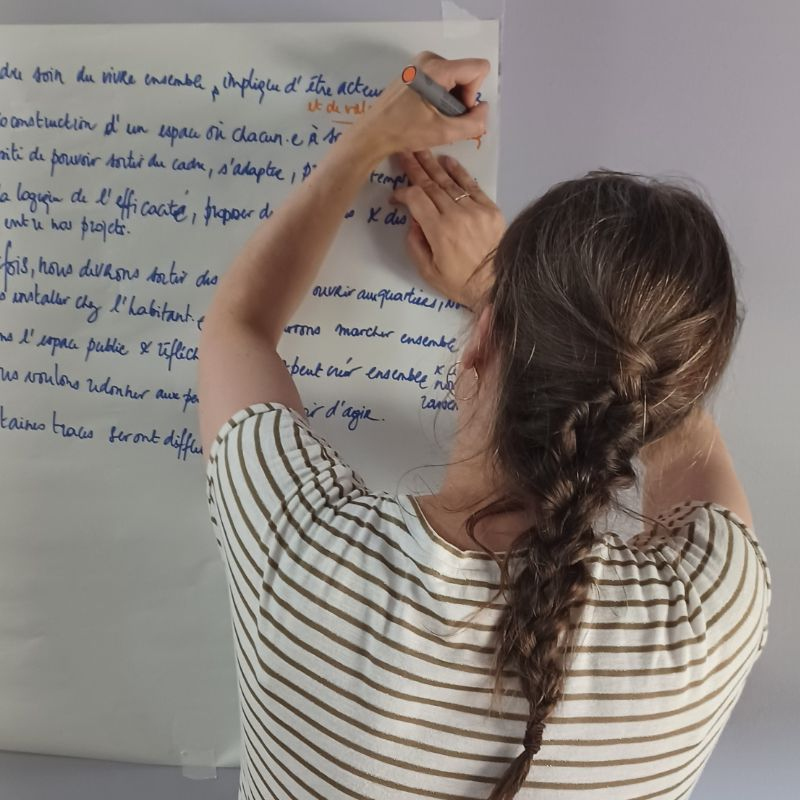 soin du vivre ensemble, implique d'être acteu
et de val
construction d'un espace où chacun·e à
de pouvoir sortir du cadre, s'adapter,
la logique de l'efficacité, proposer d
entre nos projets.
fois, nous devrons sortir des ouvrir aux quartiers,
s'installer chez l'habitant·e rrons marcher ensemble
l'espace public & réfléch peut créer ensemble
us voulons redonner aux pe ir d'agir.
taines traces seront diffu